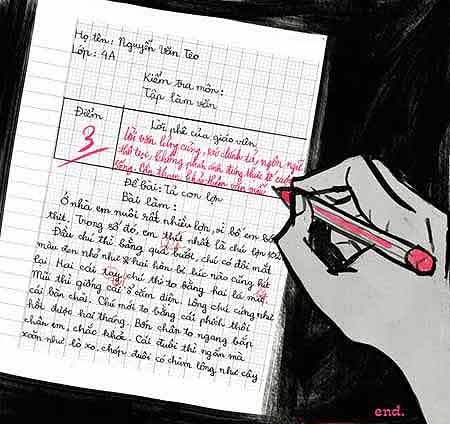 Họ tên: Nguyễn Văn Tèo
Lớp: 4A
Kiểm tra môn:
Tập làm văn
Điểm
3
Lời phê của giáo viên
lời văn lủng củng, sai chính tả, ngôn ngữ
thô tục, không phản ánh đúng thực tế cuộc
sống. Cần tham khảo thêm văn mẫu
Đề bài: Tả con lợn
Bài làm:
Ở nhà em nuôi rất nhiều lợn, vì bố em bán
thịt. Trong số đó, em thịt nhất là chú lợn
Đầu chú thì bằng quả bưởi, chú có đôi mắt
màu đen nhỏ như 2 hòn bi lúc nào cũng hít
lại. Hai cái tay chú thì to bằng hai lá mít
Mũi thì giống cái ổ cắm điện. Lông chú cứng như
cái bàn chải. Chú mới to bằng cái phích thôi
hồi được hai tháng. Bốn chân to ngang bắp
chân em, chắc khỏe. Cái đuôi thì ngắn mà
xoăn như lò xo, chóp đuôi có chùm lông như cây
end.